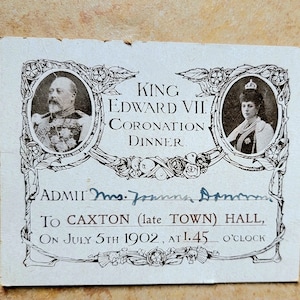 KING
EDWARD VII
CORONATION
DINNER
ADMIT Mrs. Joanna
TO CAXTON (late TOWN) HALL,
ON JULY 5TH 1902, AT 1.45 O'CLOCK